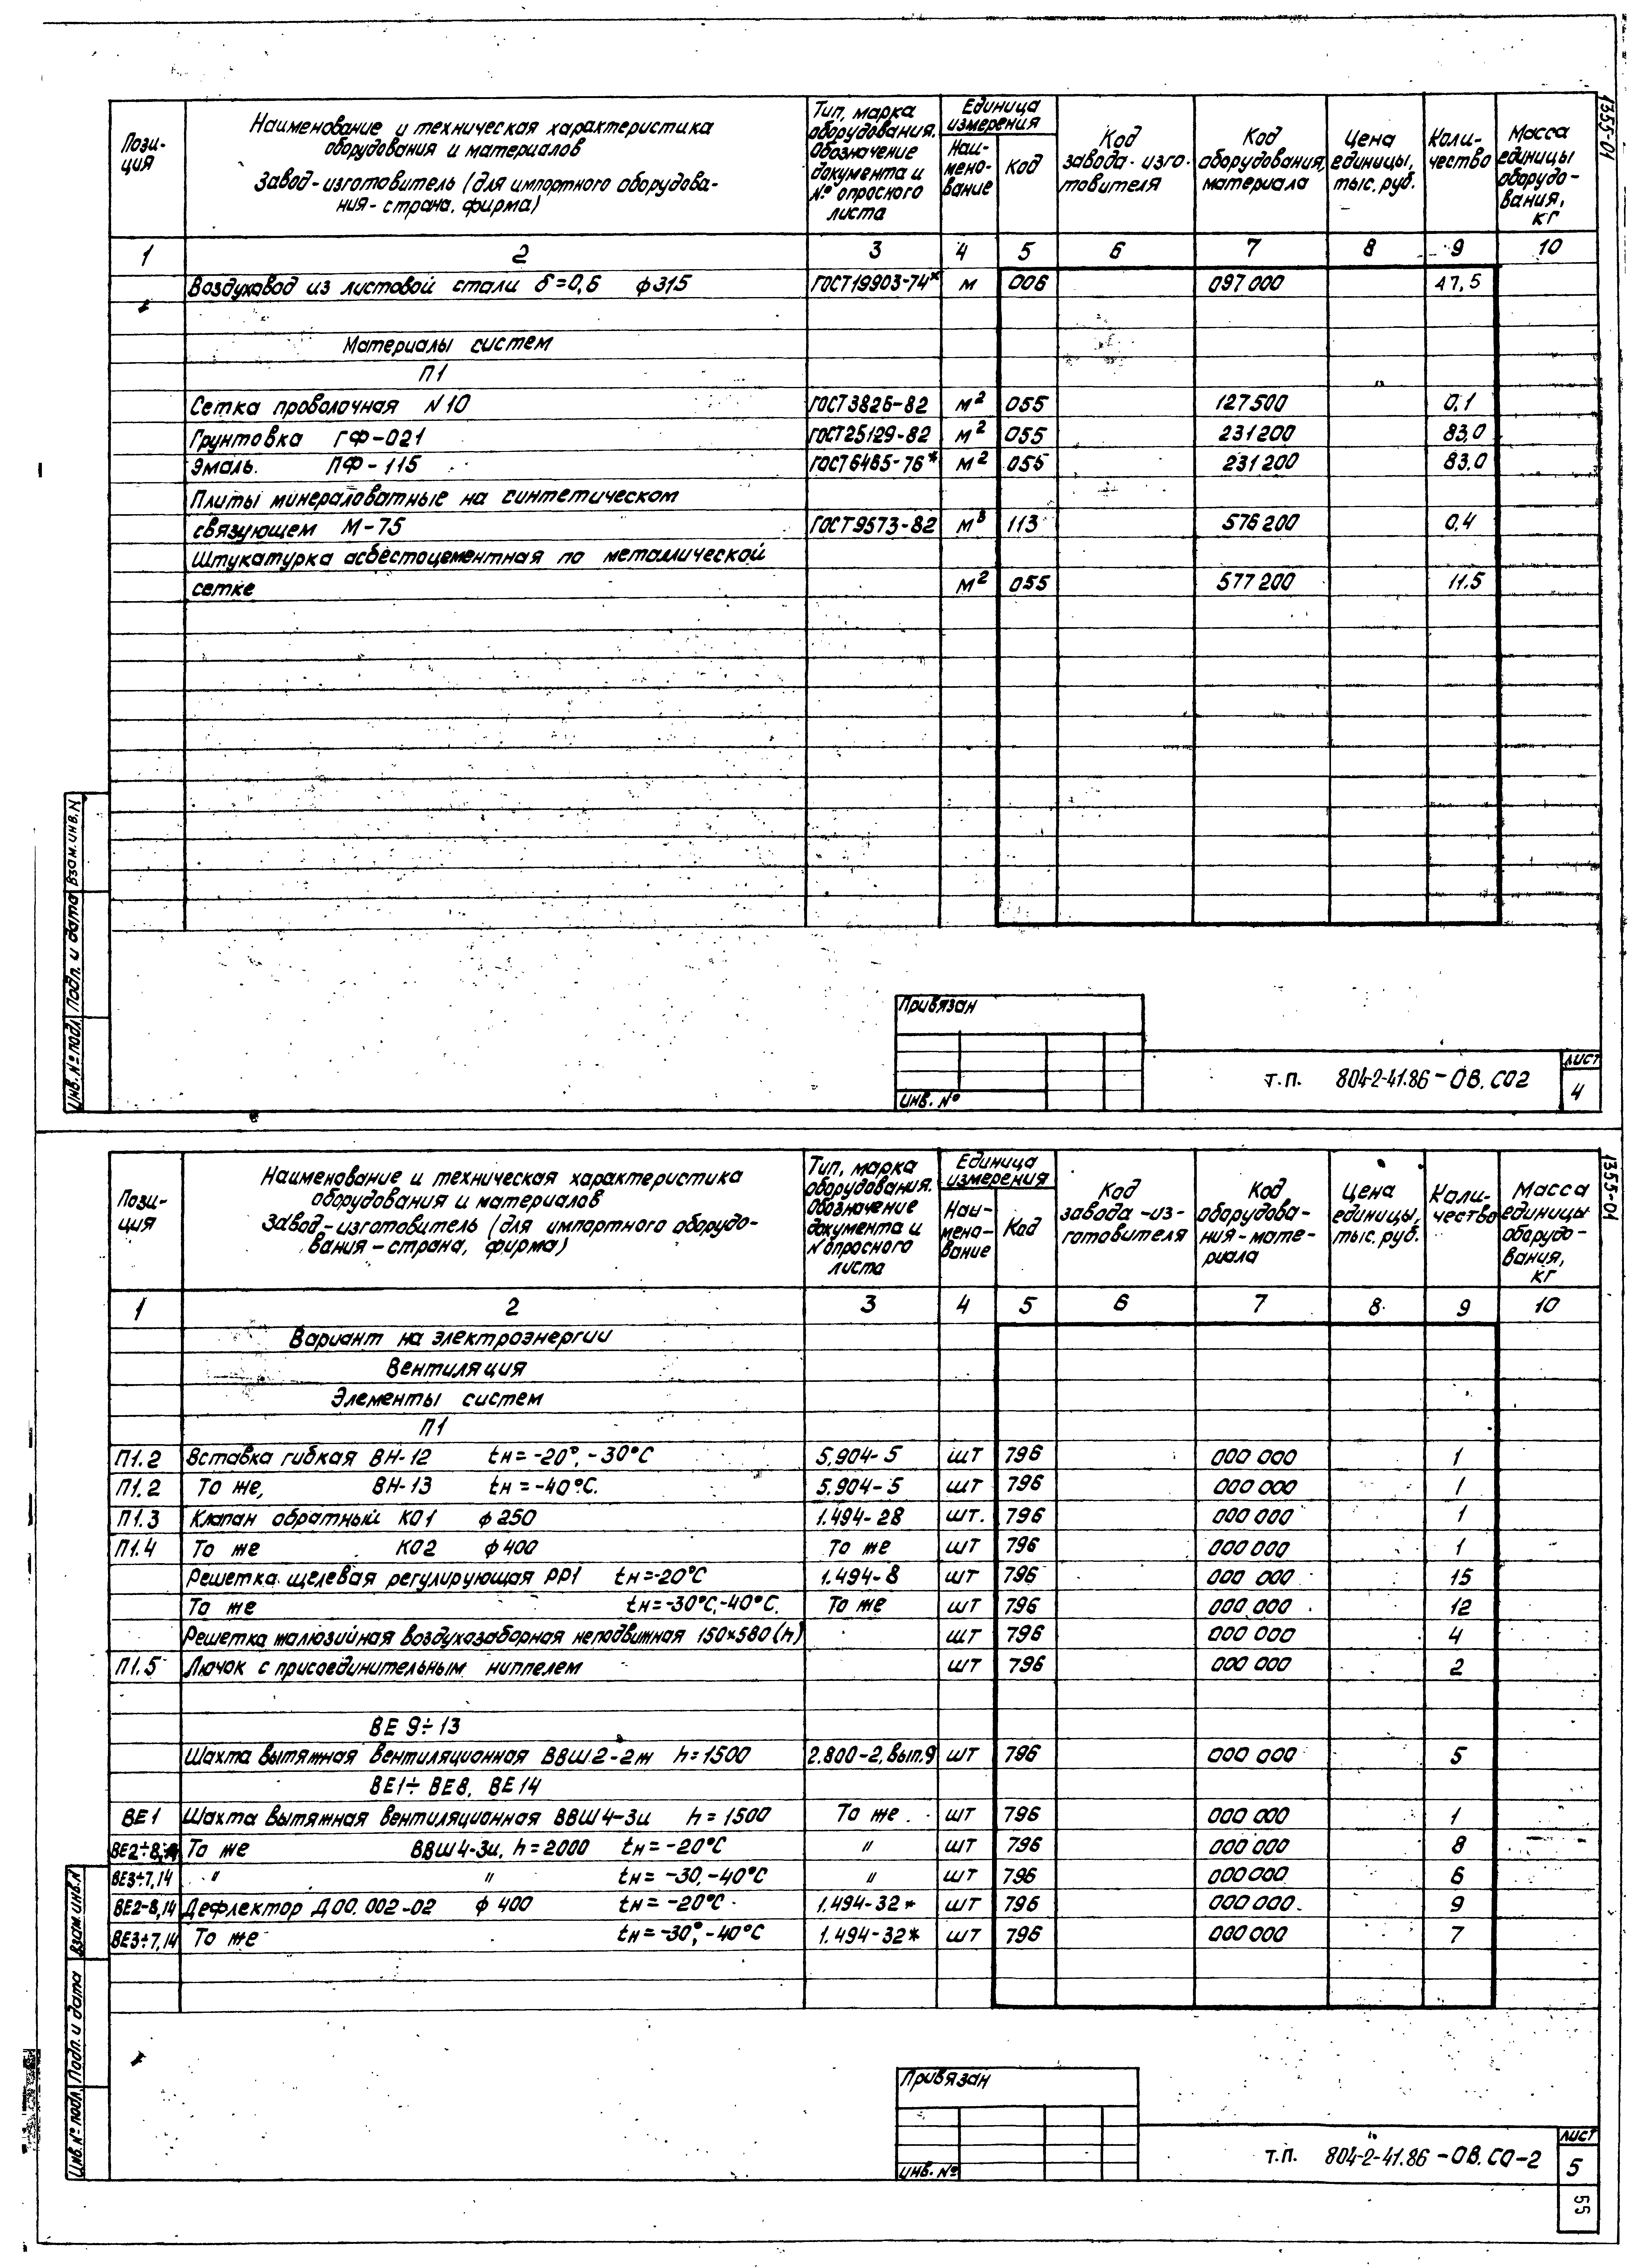 1355-01
Пози-
ция
Наименование и техническая характеристика
оборудования и материалов
Завод-изготовитель (для импортного оборудова-
ния - страна, фирма)
Тип, марка
оборудования.
Обозначение
документа и
№ опросного
листа
Единица
измерения
Наи-
мено-
вание
Код
Код
завода-изго-
товителя
Код
оборудования,
материала
Цена
единицы,
тыс. руб.
Коли-
чество
Масса
единицы
оборудо-
вания,
кг
1 2 3 4 5 6 7 8 9 10
Воздуховод из листовой стали δ=0,6 ф315 ГОСТ19903-74* м 006 097 000 47,5
Материалы систем
П1
Сетка проволочная N10 ГОСТ3826-82 м² 055 127500 0,1
Грунтовка ГФ-021 ГОСТ25129-82 м² 055 231200 83,0
Эмаль. ПФ-115 ГОСТ6465-76* м² 055 231200 83,0
Плиты минераловатные на синтетическом
связующем М-75 ГОСТ9573-82 м³ 113 576200 0,4
Штукатурка асбестоцементная по металлической
сетке м² 055 577200 11.5
Инв. № подл. Подп. и дата Взам. инв. N
Привязан
Инв. №
т.п. 804-2-41.86-ОВ.СО2
лист
4
1355-01
Пози-
ция
Наименование и техническая характеристика
оборудования и материалов
Завод-изготовитель (для импортного оборудо-
вания - страна, фирма)
Тип, марка
оборудования.
Обозначение
документа и
N опросного
листа
Единица
измерения
Наи-
мено-
вание
Код
Код
завода-из-
готовителя
Код
оборудова-
ния-мате-
риала
Цена
единицы,
тыс. руб.
Коли-
чество
Масса
единицы
оборудо-
вания,
кг
1 2 3 4 5 6 7 8 9 10
Вариант на электроэнергии
Вентиляция
Элементы систем
П1
П1.2 Вставка гибкая ВН-12 tн=-20°,-30°С 5.904-5 шт 796 000 000 1
П1.2 То же, ВН-13 tн=-40°С. 5.904-5 шт 796 000 000 1
П1.3 Клапан обратный КО1 ф250 1.494-28 шт. 796 000 000 1
П1.4 То же КО2 ф400 То же шт 796 000 000 1
Решетка щелевая регулирующая РР1 tн=-20°С 1.494-8 шт 796 000 000 15
То же tн=-30°С,-40°С. То же шт 796 000 000 12
Решетка жалюзийная воздухозаборная неподвижная 150×580(h) шт 796 000 000 4
П1.5 Лючок с присоединительным ниппелем шт 796 000 000 2
ВЕ 9÷13
Шахта вытяжная вентиляционная ВВШ2-2ж h=1500 2.800-2, вып.9 шт 796 000 000 5
ВЕ1÷ВЕ8, ВЕ14
ВЕ1 Шахта вытяжная вентиляционная ВВШ4-3и h=1500 То же шт 796 000 000 1
ВЕ2÷8,14 То же ВВШ4-3и, h=2000 tн=-20°С " шт 796 000 000 8
ВЕ3÷7,14 " " tн=-30,-40°С " шт 796 000 000 6
ВЕ2-8,14 Дефлектор Д00.002-02 ф400 tн=-20°С 1.494-32* шт 796 000 000 9
ВЕ3÷7,14 То же tн=-30°,-40°С 1.494-32* шт 796 000 000 7
Инв. № подл. Подп. и дата Взам. инв. N
Привязан
инв. №
т.п. 804-2-41.86-ОВ.СО-2
лист
5
55